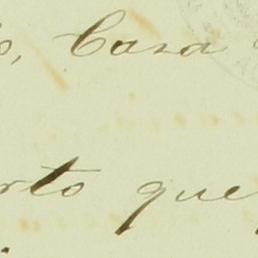 o, Casa
rto que